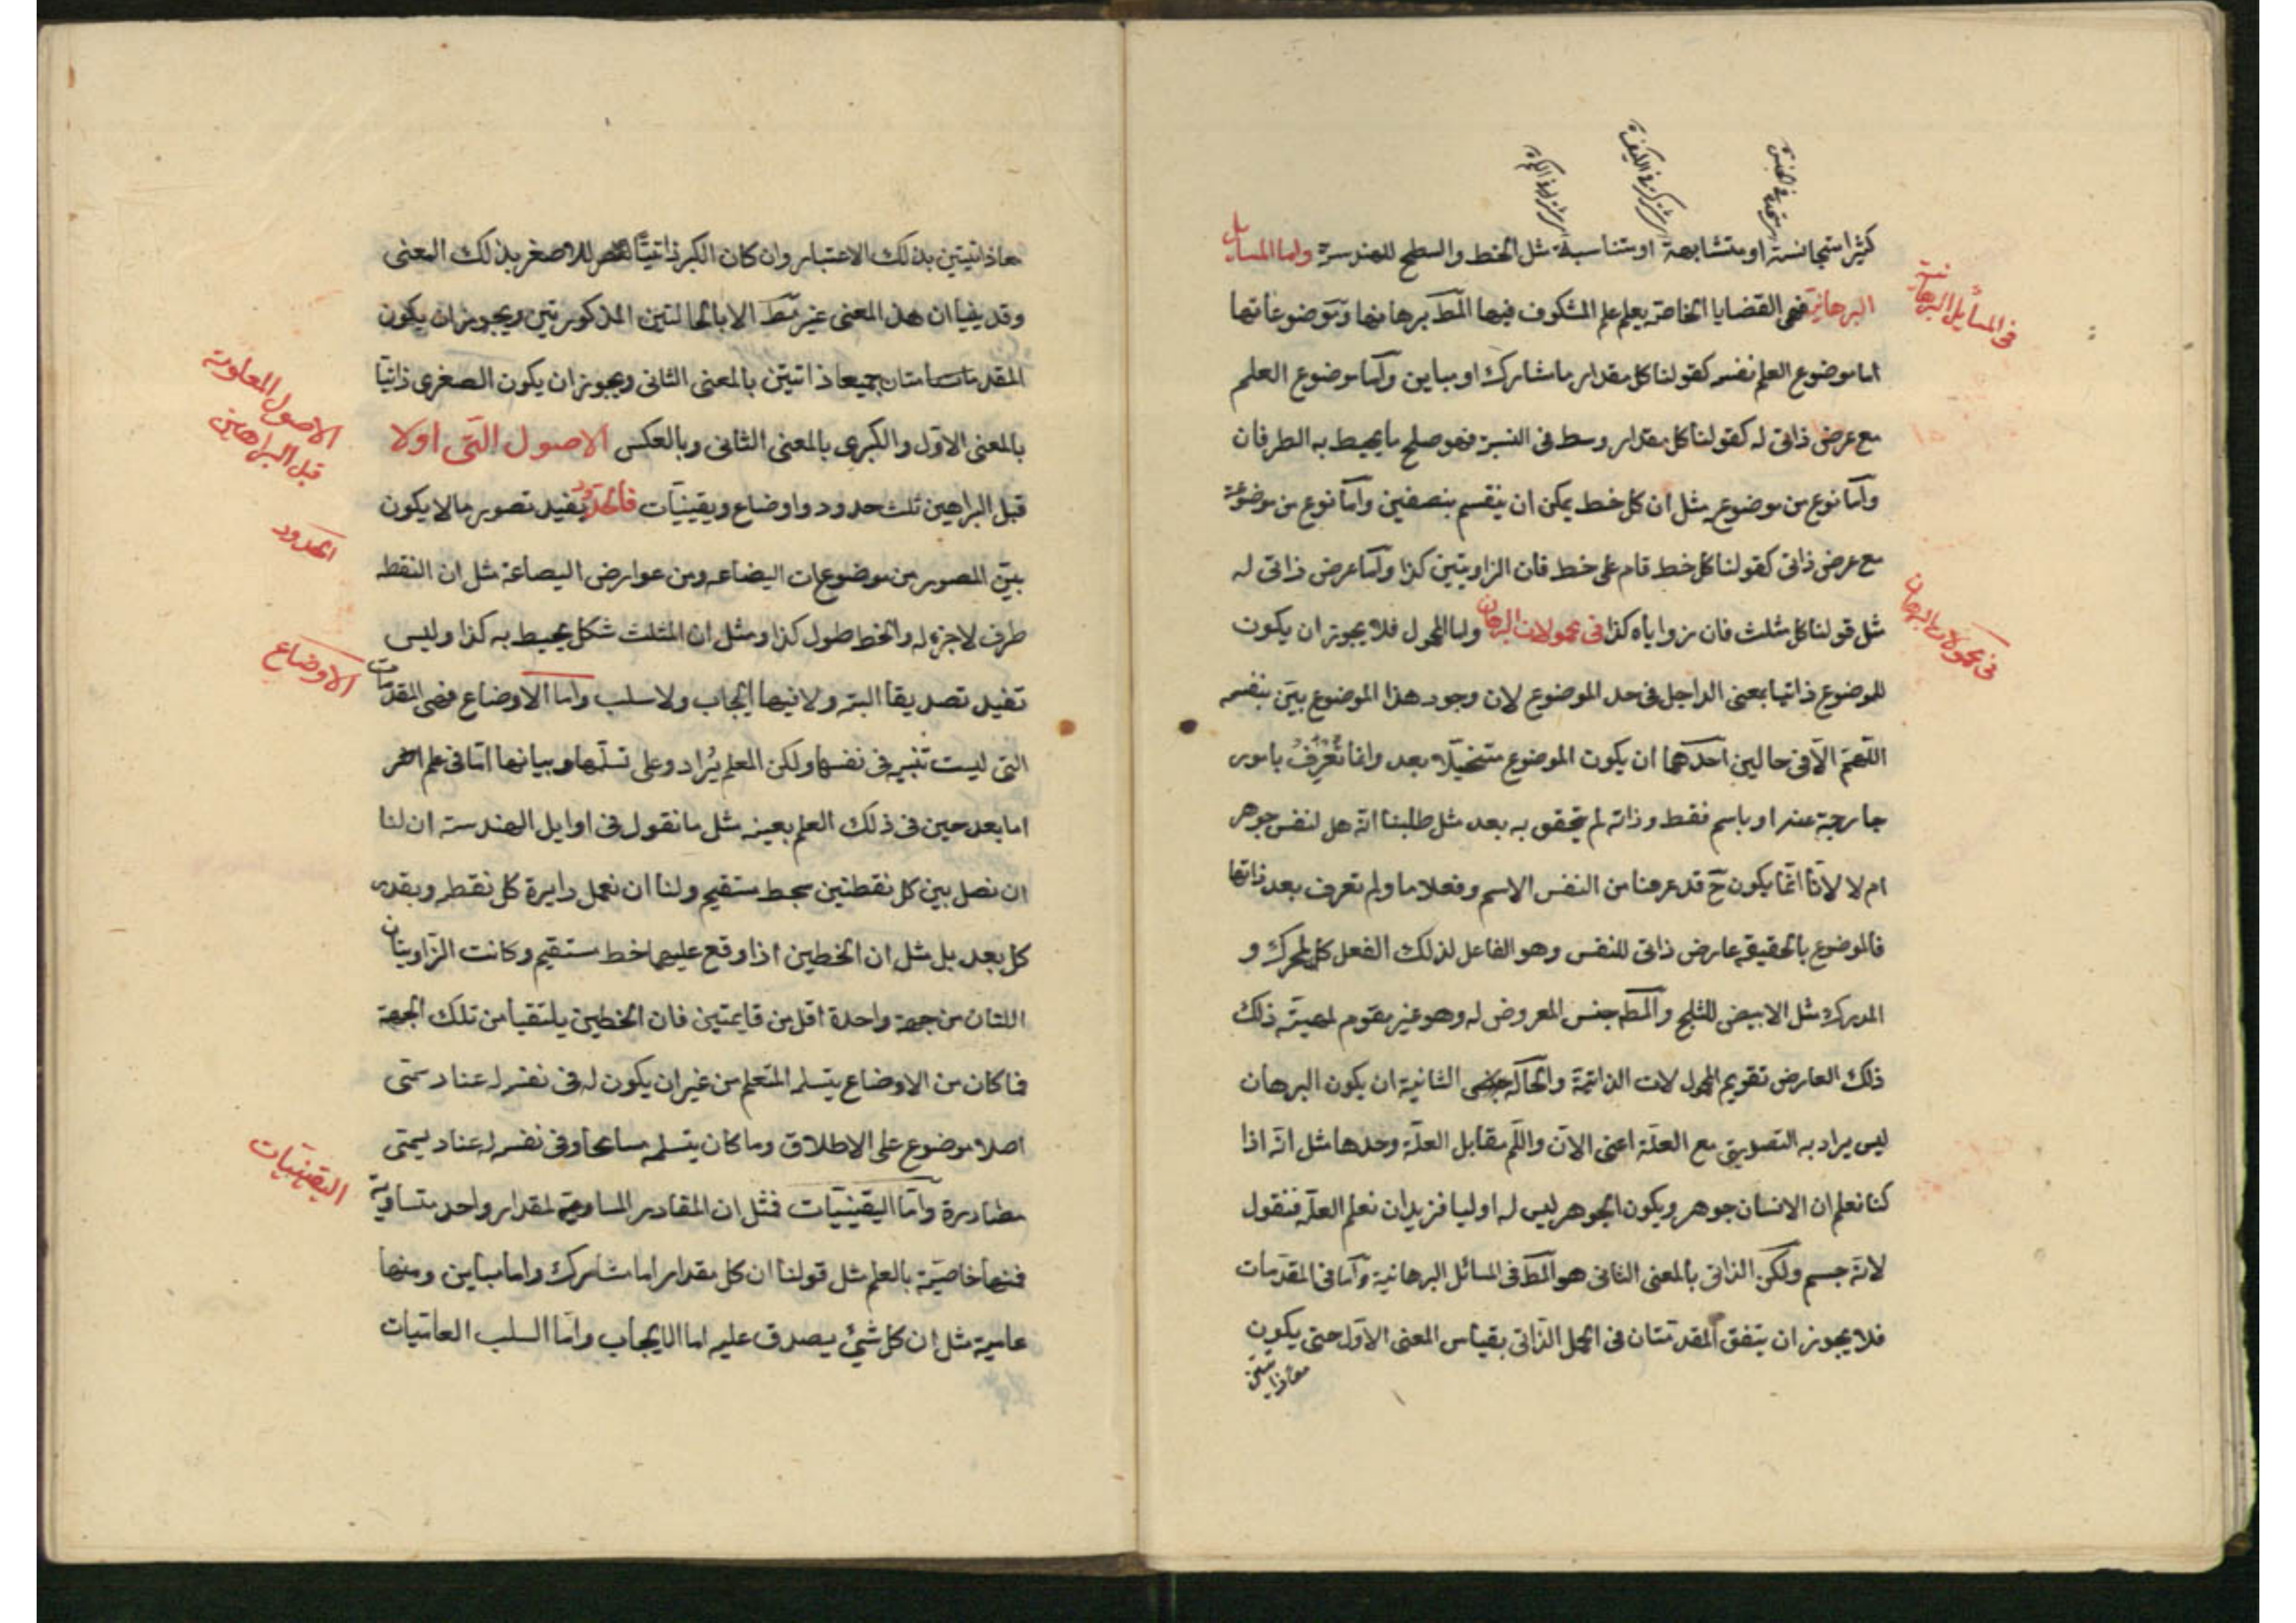 كثيرا متجانسة او متشابهة او متناسبة مثل الخط والسطح للهندسة واما المسايل
البرهانية فهي القضايا الخاصة بعلم علم المشكوك فيها المط برهانها وموضوعاتها
اما موضوع العلم نفسه كقولنا كل مقدار ما مشارك او مباين واما موضوع العلم
مع عرض ذاتي له كقولنا كل مقدار وسط في النسبة فهو صلح ما يحيط به الطرفان
واما نوع من موضوعه مثل ان كل خط يمكن ان ينقسم بنصفين واما نوع من موضوعة
مع عرض ذاتي كقولنا كل خط قام على خط فان الزاويتين كذا واما عرض ذاتي له
مثل قولنا كل مثلث فان زواياه كذا في محمولات البرهان واما المحمول فلا يجوز ان يكون
للموضوع ذاتيا بمعنى الداخل في حد الموضوع لان وجود هذا الموضوع بين بنفسه
اللهم الا في حالين احدهما ان يكون الموضوع متخيلا بعد وانما تعرف بامور
خارجية عنه او باسم فقط وذاته لم يتحقق به بعد مثل طلبنا انه هل لنفس جوهر
ام لا لانا انما يكون ح قد عرفنا من النفس الاسم وفعلا ما ولم تعرف بعد ذاتها
فالموضوع بالحقيقة عارض ذاتي للنفس وهو الفاعل لذلك الفعل كالمحرك و
المدرك مثل الابيض للثلج والمط جنس المعروض له وهو غير مقوم لمهية ذلك
ذلك العارض تقويم المحمولات الذاتية والحالة الثانية ان يكون البرهان
ليس يراد به التصديق مع العلة اعني الان واللم مقابل العلة وحدها مثل انه اذا
كنا نعلم ان الانسان جوهر ويكون الجوهر ليس له اوليا فنريد ان نعلم العلة فنقول
لانه جسم ولكن الذاتي بالمعنى الثاني هو المط في المسائل البرهانية واما في المقدمات
فلا يجوز ان يتفق المقدمتان في الحمل الذاتي بقياس المعنى الاول حتى يكون
معا ذاتيتين
في المسايل البرهانية
في محمولات البرهان
معا ذاتيتين بذلك الاعتبار وان كان الكبر ذاتيا للاصغر بذلك المعنى
وقد بينا ان هذا المعنى غير مط الا بالحالتين المذكورتين ويجوز ان يكون
المقدمتان جميعا ذاتيتين بالمعنى الثاني ويجوز ان يكون الصغرى ذاتيا
بالمعنى الاول والكبرى بالمعنى الثاني وبالعكس الاصول التي اولا
قبل البراهين ثلث حدود واوضاع ويقينيات فالحدود تفيد تصور ما لا يكون
بين التصور من موضوعات البضاعه ومن عوارض البضاعة مثل ان النقطه
طرف لا جزء له والخط طول كذا ومثل ان المثلث شكل يحيط به كذا وليس
تفيد تصديقا البتة ولا فيها ايجاب ولا سلب واما الاوضاع فهي المقدمات
التي ليست بينة في نفسها ولكن المعلم يراد وعلى تسلمها وبيانها اما في علم اخر
اما بعد حين في ذلك العلم بعينه مثل ما نقول في اوايل الهندسة ان لنا
ان نصل بين كل نقطتين بخط مستقيم ولنا ان نعمل دايرة كل نقطه وبقدر
كل بعد بل مثل ان الخطين اذا وقع عليهما خط مستقيم وكانت الزاويتان
اللتان من جهة واحدة اقل من قايمتين فان الخطين يلتقيا من تلك الجهة
فما كان من الاوضاع يتسلمه المتعلم من غير ان يكون له في نفسه عناد سمتى
اصلا موضوع على الاطلاق وما كان يتسلمه مسامحا وفي نفسه له عناد يسمتى
مصادرة واما اليقينيات فمثل ان المقادير المساوية لمقدار واحد متساوية
فمنها خاصية بالعلم مثل قولنا ان كل مقدار اما مشارك واما مباين ومنها
عامية مثل ان كل شيئ يصدق عليه اما الايجاب واما السلب العاميات
الاصول المعلومة
قبل البراهين
الحدود
الاوضاع
اليقينيات